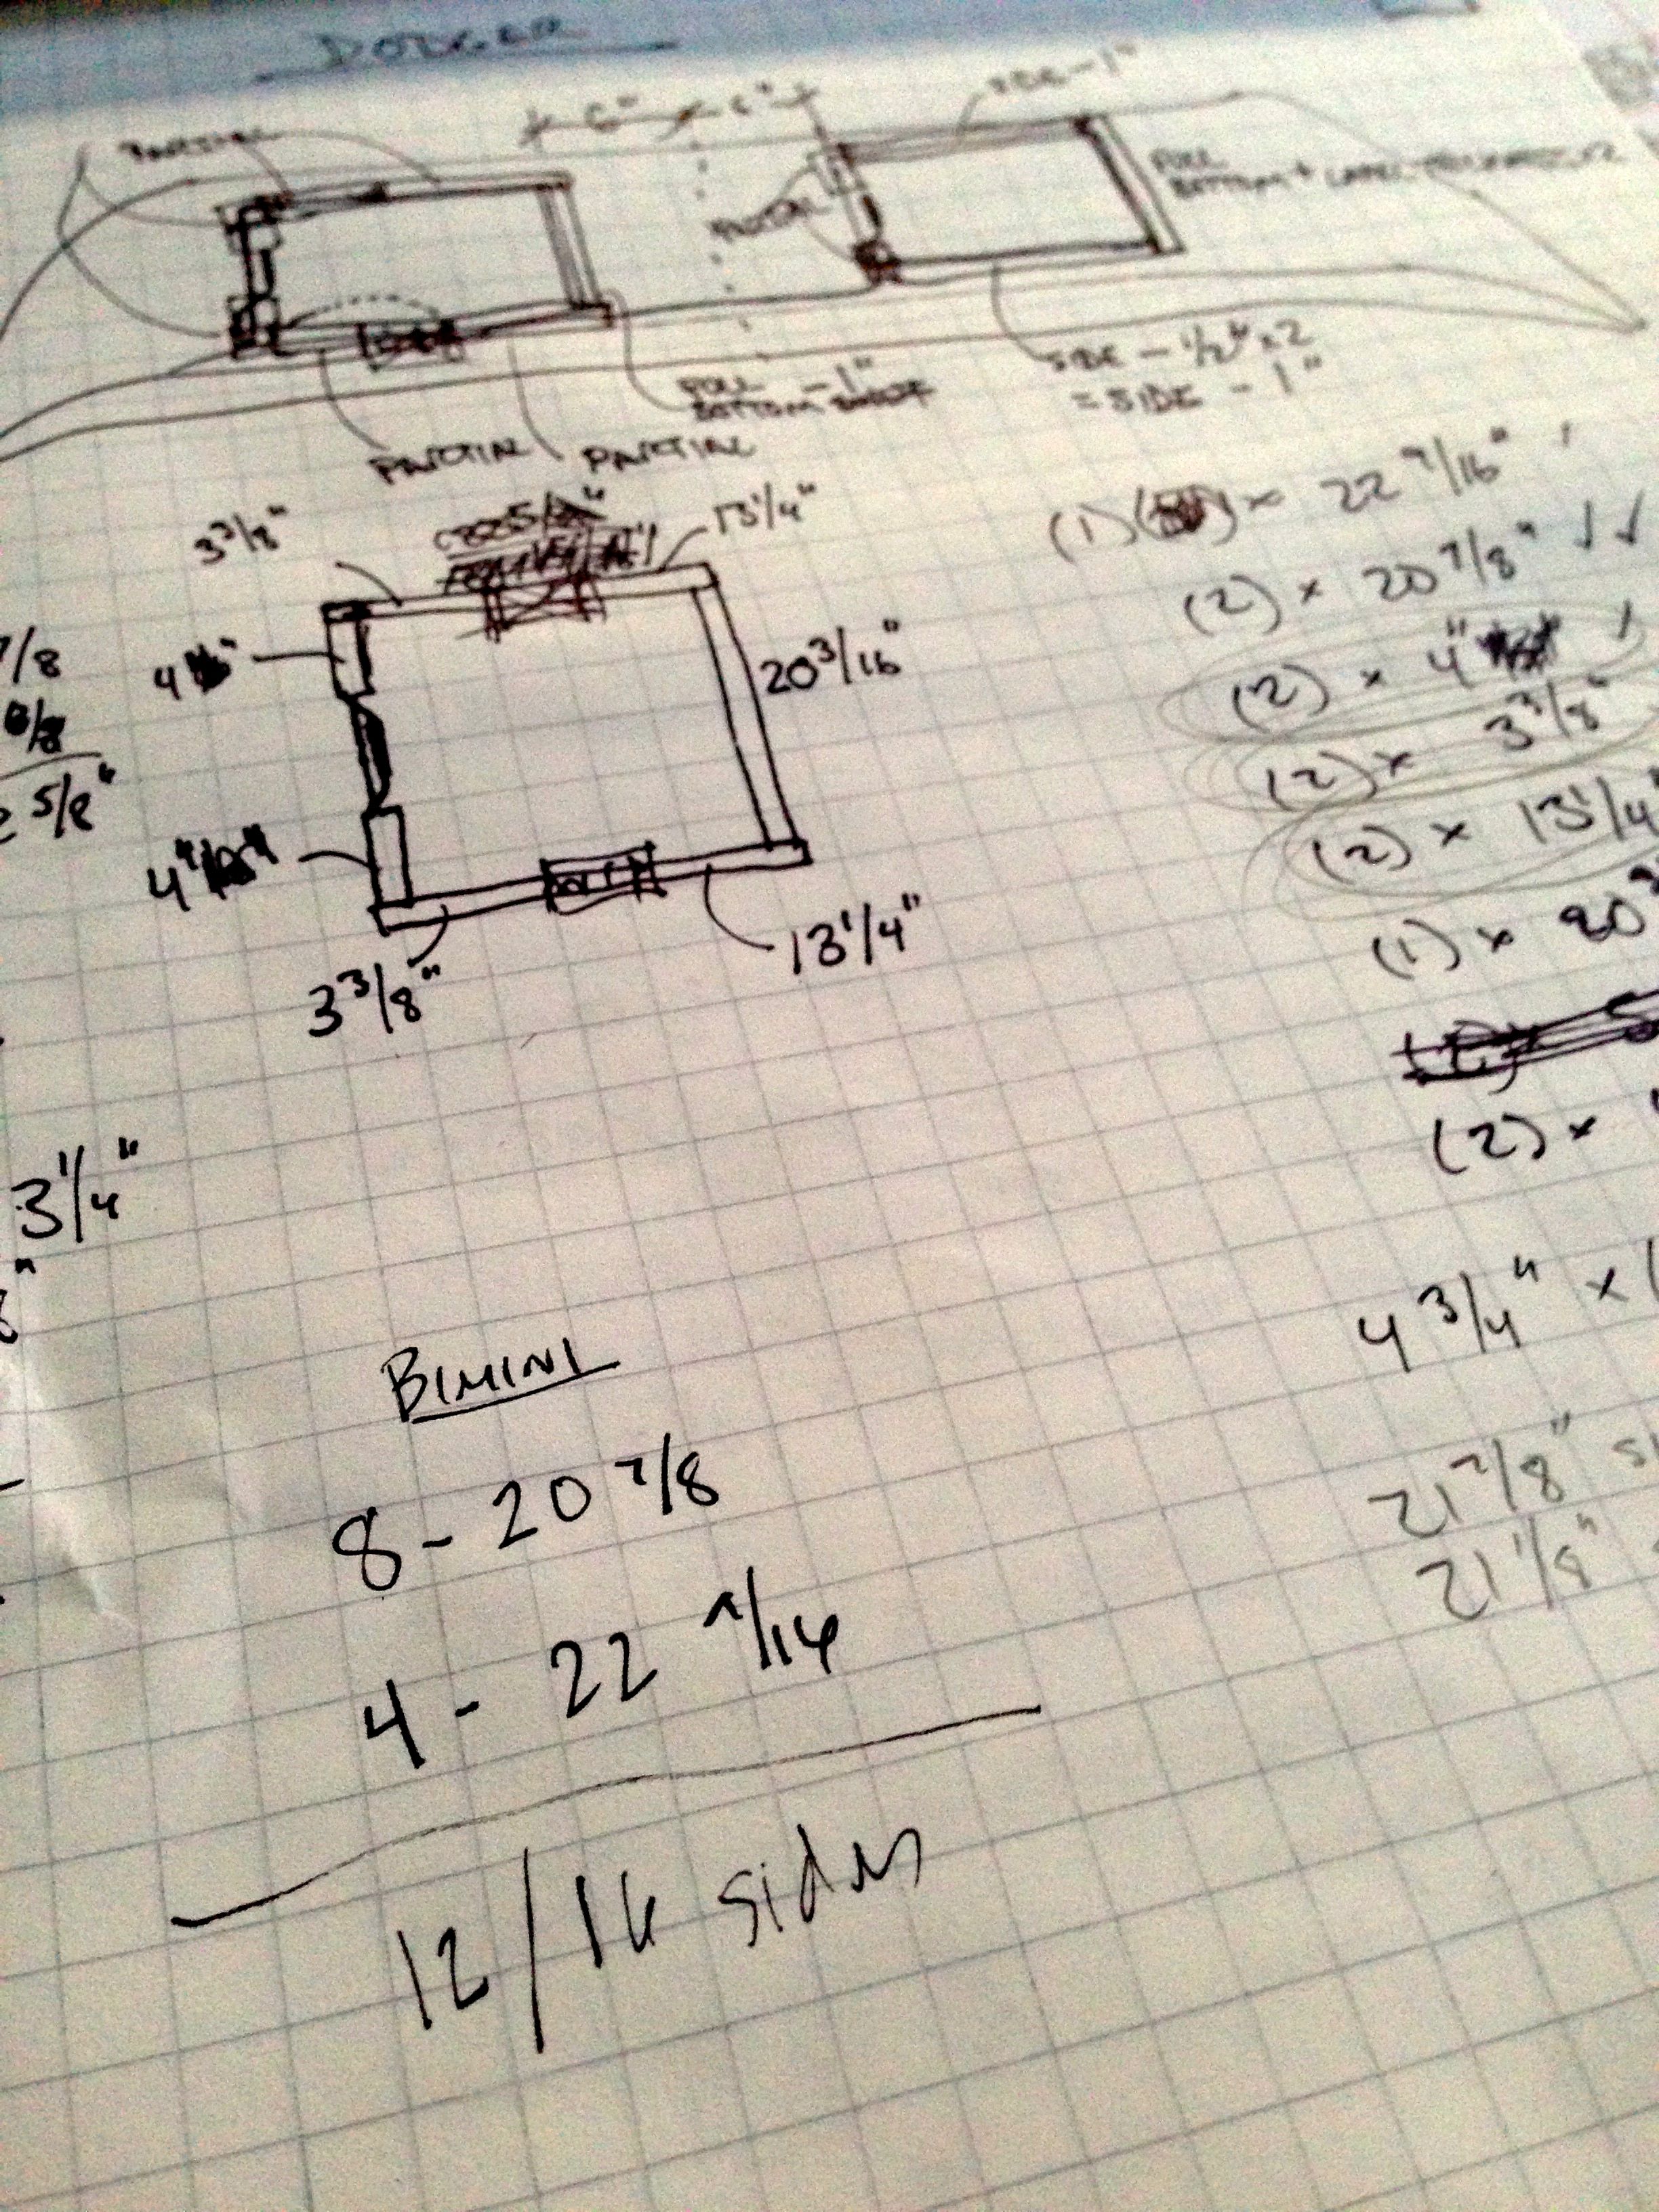 DODGER
PARTIAL
6" 6"
SIDE - 1"
PARTIAL
FULL
BOTTOM +
FULL - 1"
BOTTOM
SIDE - 1/2" x 2
= SIDE - 1"
PARTIAL PARTIAL
3 3/8"
13 1/4"
4
20 3/16"
4"
3 3/8"
13 1/4"
7/8
5/8"
3 1/4"
(1) x 22 7/16"
(2) x 20 7/8" ✓✓
(2) x 4"
(2) x 3 3/8"
(2) x 13 1/4"
(1) x 20
(2) x
4 3/4" x
21 7/8"
21 1/8"
BIMINI
8 - 20 7/8
4 - 22 7/16
12/16 sides